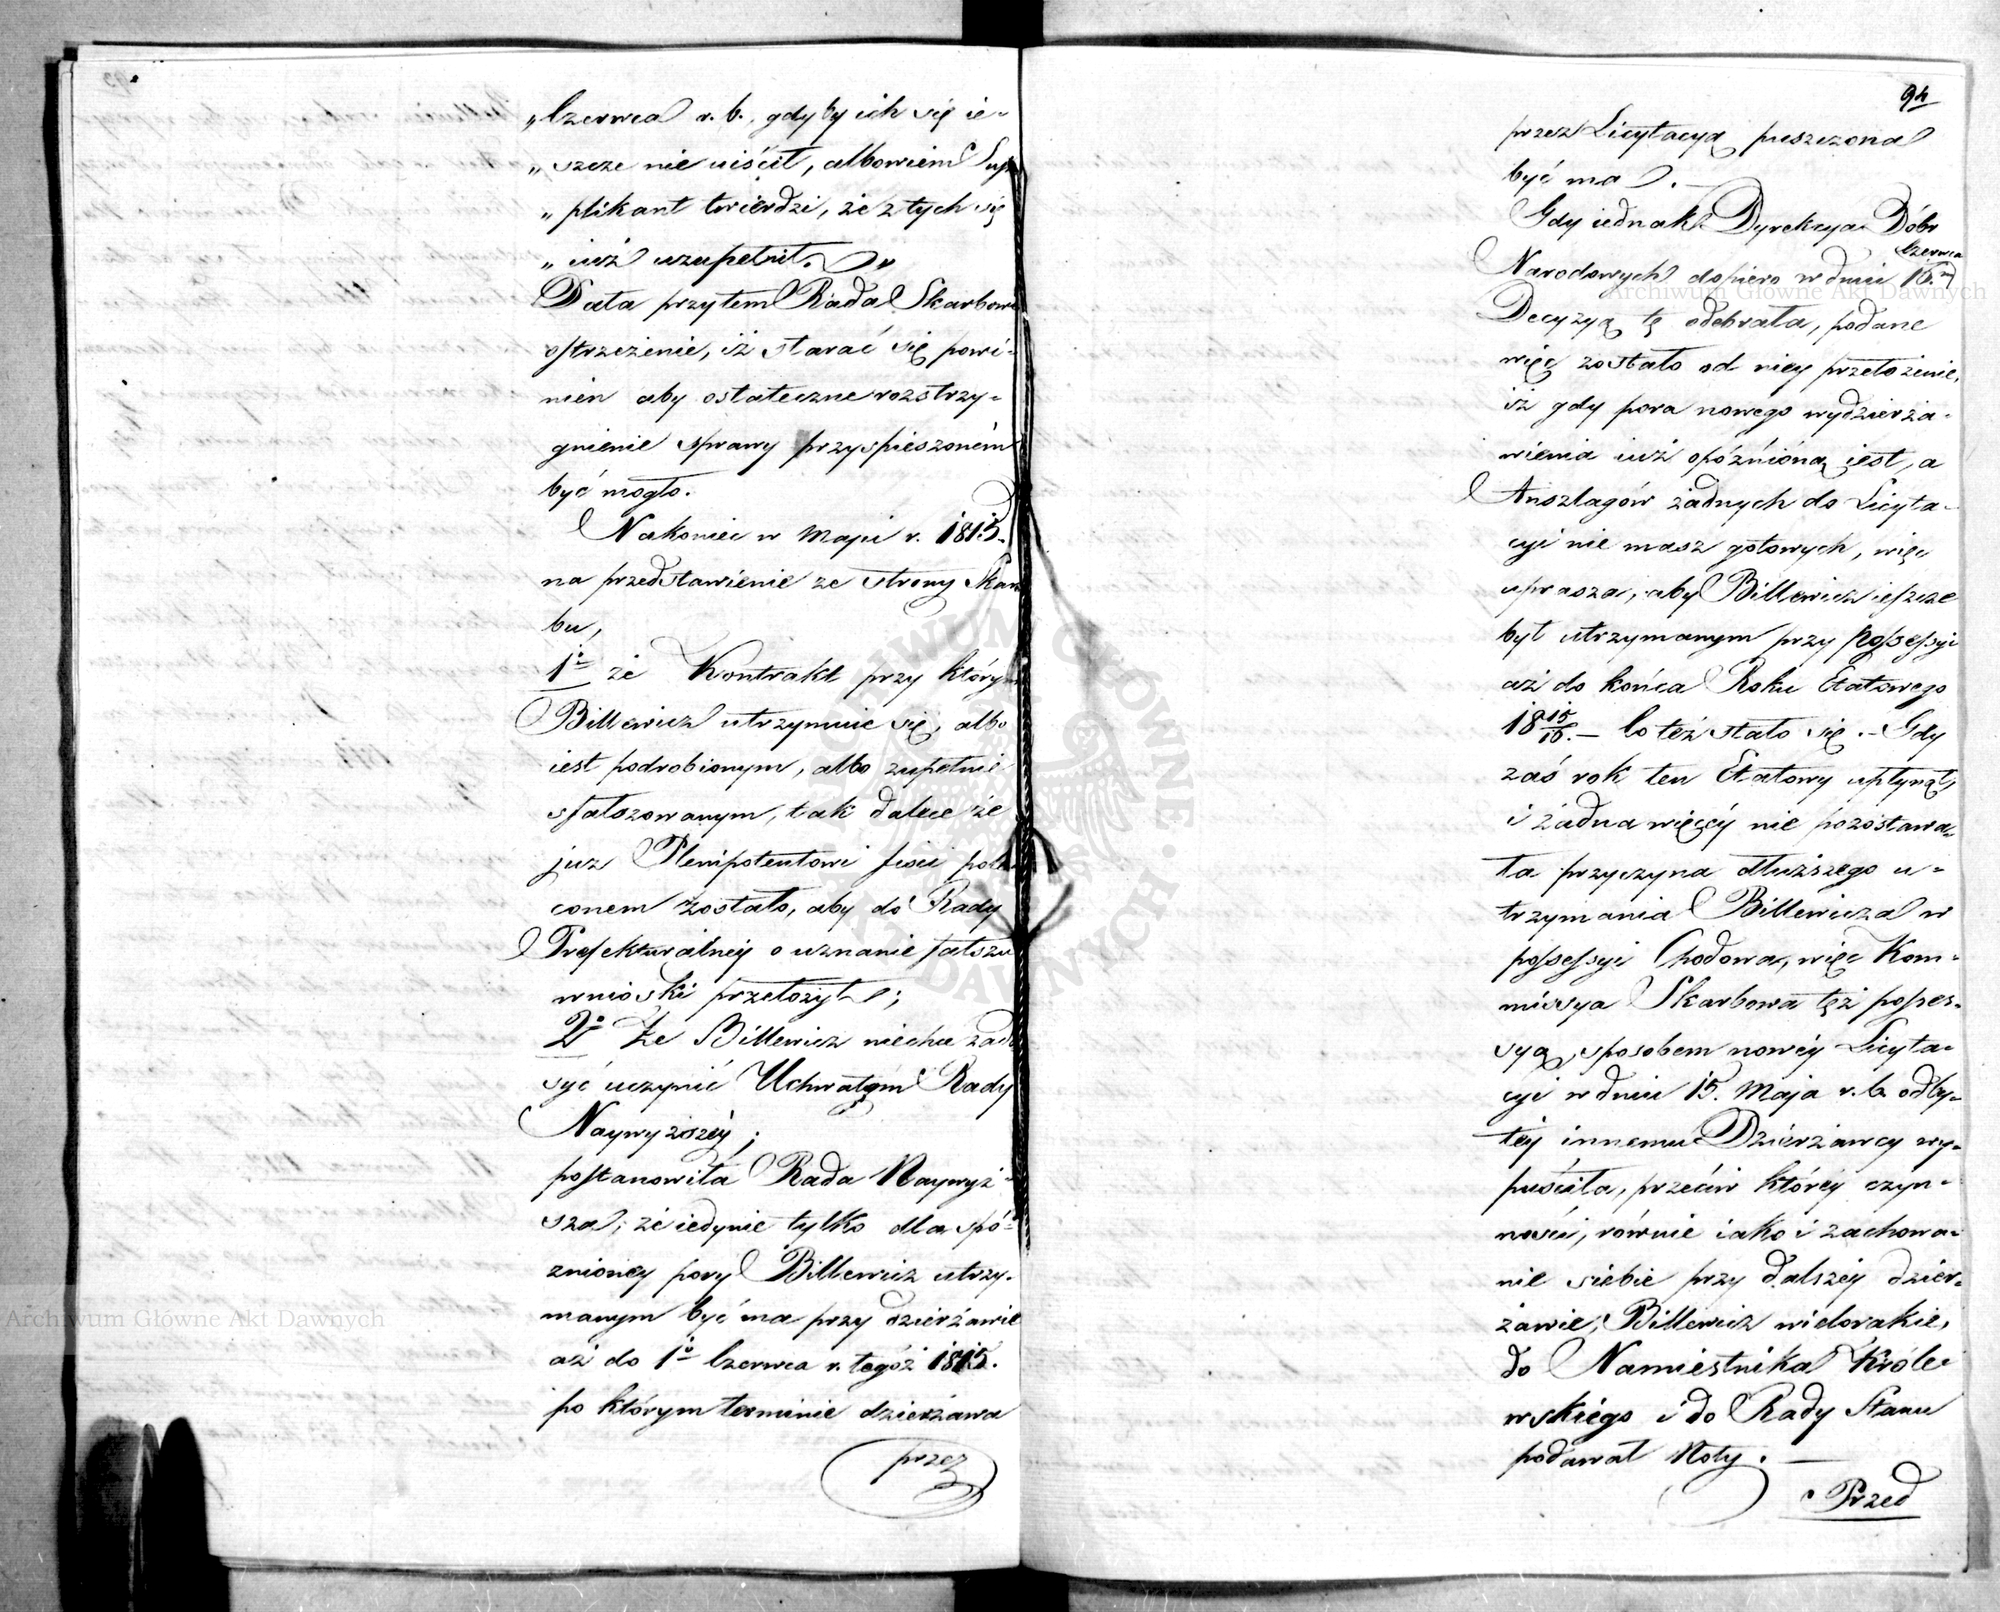 „Czerwca r. b., gdyby ich się ie-
„szcze nie uiścił, albowiem Sup
„plikant twierdzi, że z tych się
„iuż uzupełnił.
Data przytem Rada Skarbowi
ostrzeżenie, iż starać się powi-
nien aby ostateczne rozstrzy-
gnienie sprawy przyspieszoném
być mogło.
Nakoniec w Maju r. 1815.
na przedstawienie ze strony Skar
bu,
1o że Kontrakt przy którym
Billewicz utrzymuie się, albo
iest podrobionym, albo zupełnie
sfałszowanym, tak dalece że
już Plenipotentowi fisci pole
conem zostało, aby do Rady
Prefekturalnéy o uznanie fałszu
wnioski przełożył;
2o Że Billewicz niechce zado
syć uczynić Uchwałom Rady
Naywyższéy;
postanowiła Rada Naywyż-
sza, że iedynie tylko dla spó-
znioney pory Billewicz utrzy-
manym być ma przy dzierżawie
aż do 1o Czerwca r. tegóż 1815.
po którym terminie dzierżawa
przez
94
przez Licytacyą puszczona
być ma.
Gdy iednak Dyrekcya Dóbr
Czerwca
Narodowych dopiero w dniu 16.
Decyzyą tę odebrała, podane
więc zostało od niey przełożenie,
iż gdy pora nowego wydzierża-
wienia iuż opóźnioną iest, a
Anszlagów żadnych do Licyta-
cyi nie masz gotowych, więc
uprasza, aby Billewicz ieszcze
był utrzymanym przy possessyi
aż do końca Roku Etatowego
18 15/16. — Co też stało się. — Gdy
zaś rok ten Etatowy upłynął,
i żadna więcéy nie pozostawa-
ła przyczyna dłuższego u-
trzymania Billewicza w
possessyi Chodowa, więc Kom-
missya Skarbowa też posses-
syą, sposobem nowéy Licyta-
cyi w dniu 15. Maja r. b. odby-
téy innemu Dzierżawcy wy-
puściła, przeciw któréy czyn-
ności, równie iako i zachowa-
nie siebie przy dalszéy dzier-
żawie, Billewicz wielorakie,
do Namiestnika Króle-
wskiego i do Rady Stanu
podawał Noty. —
Przed
Archiwum Główne Akt Dawnych
Archiwum Główne Akt Dawnych
ARCHIWUM GŁÓWNE AKT DAWNYCH